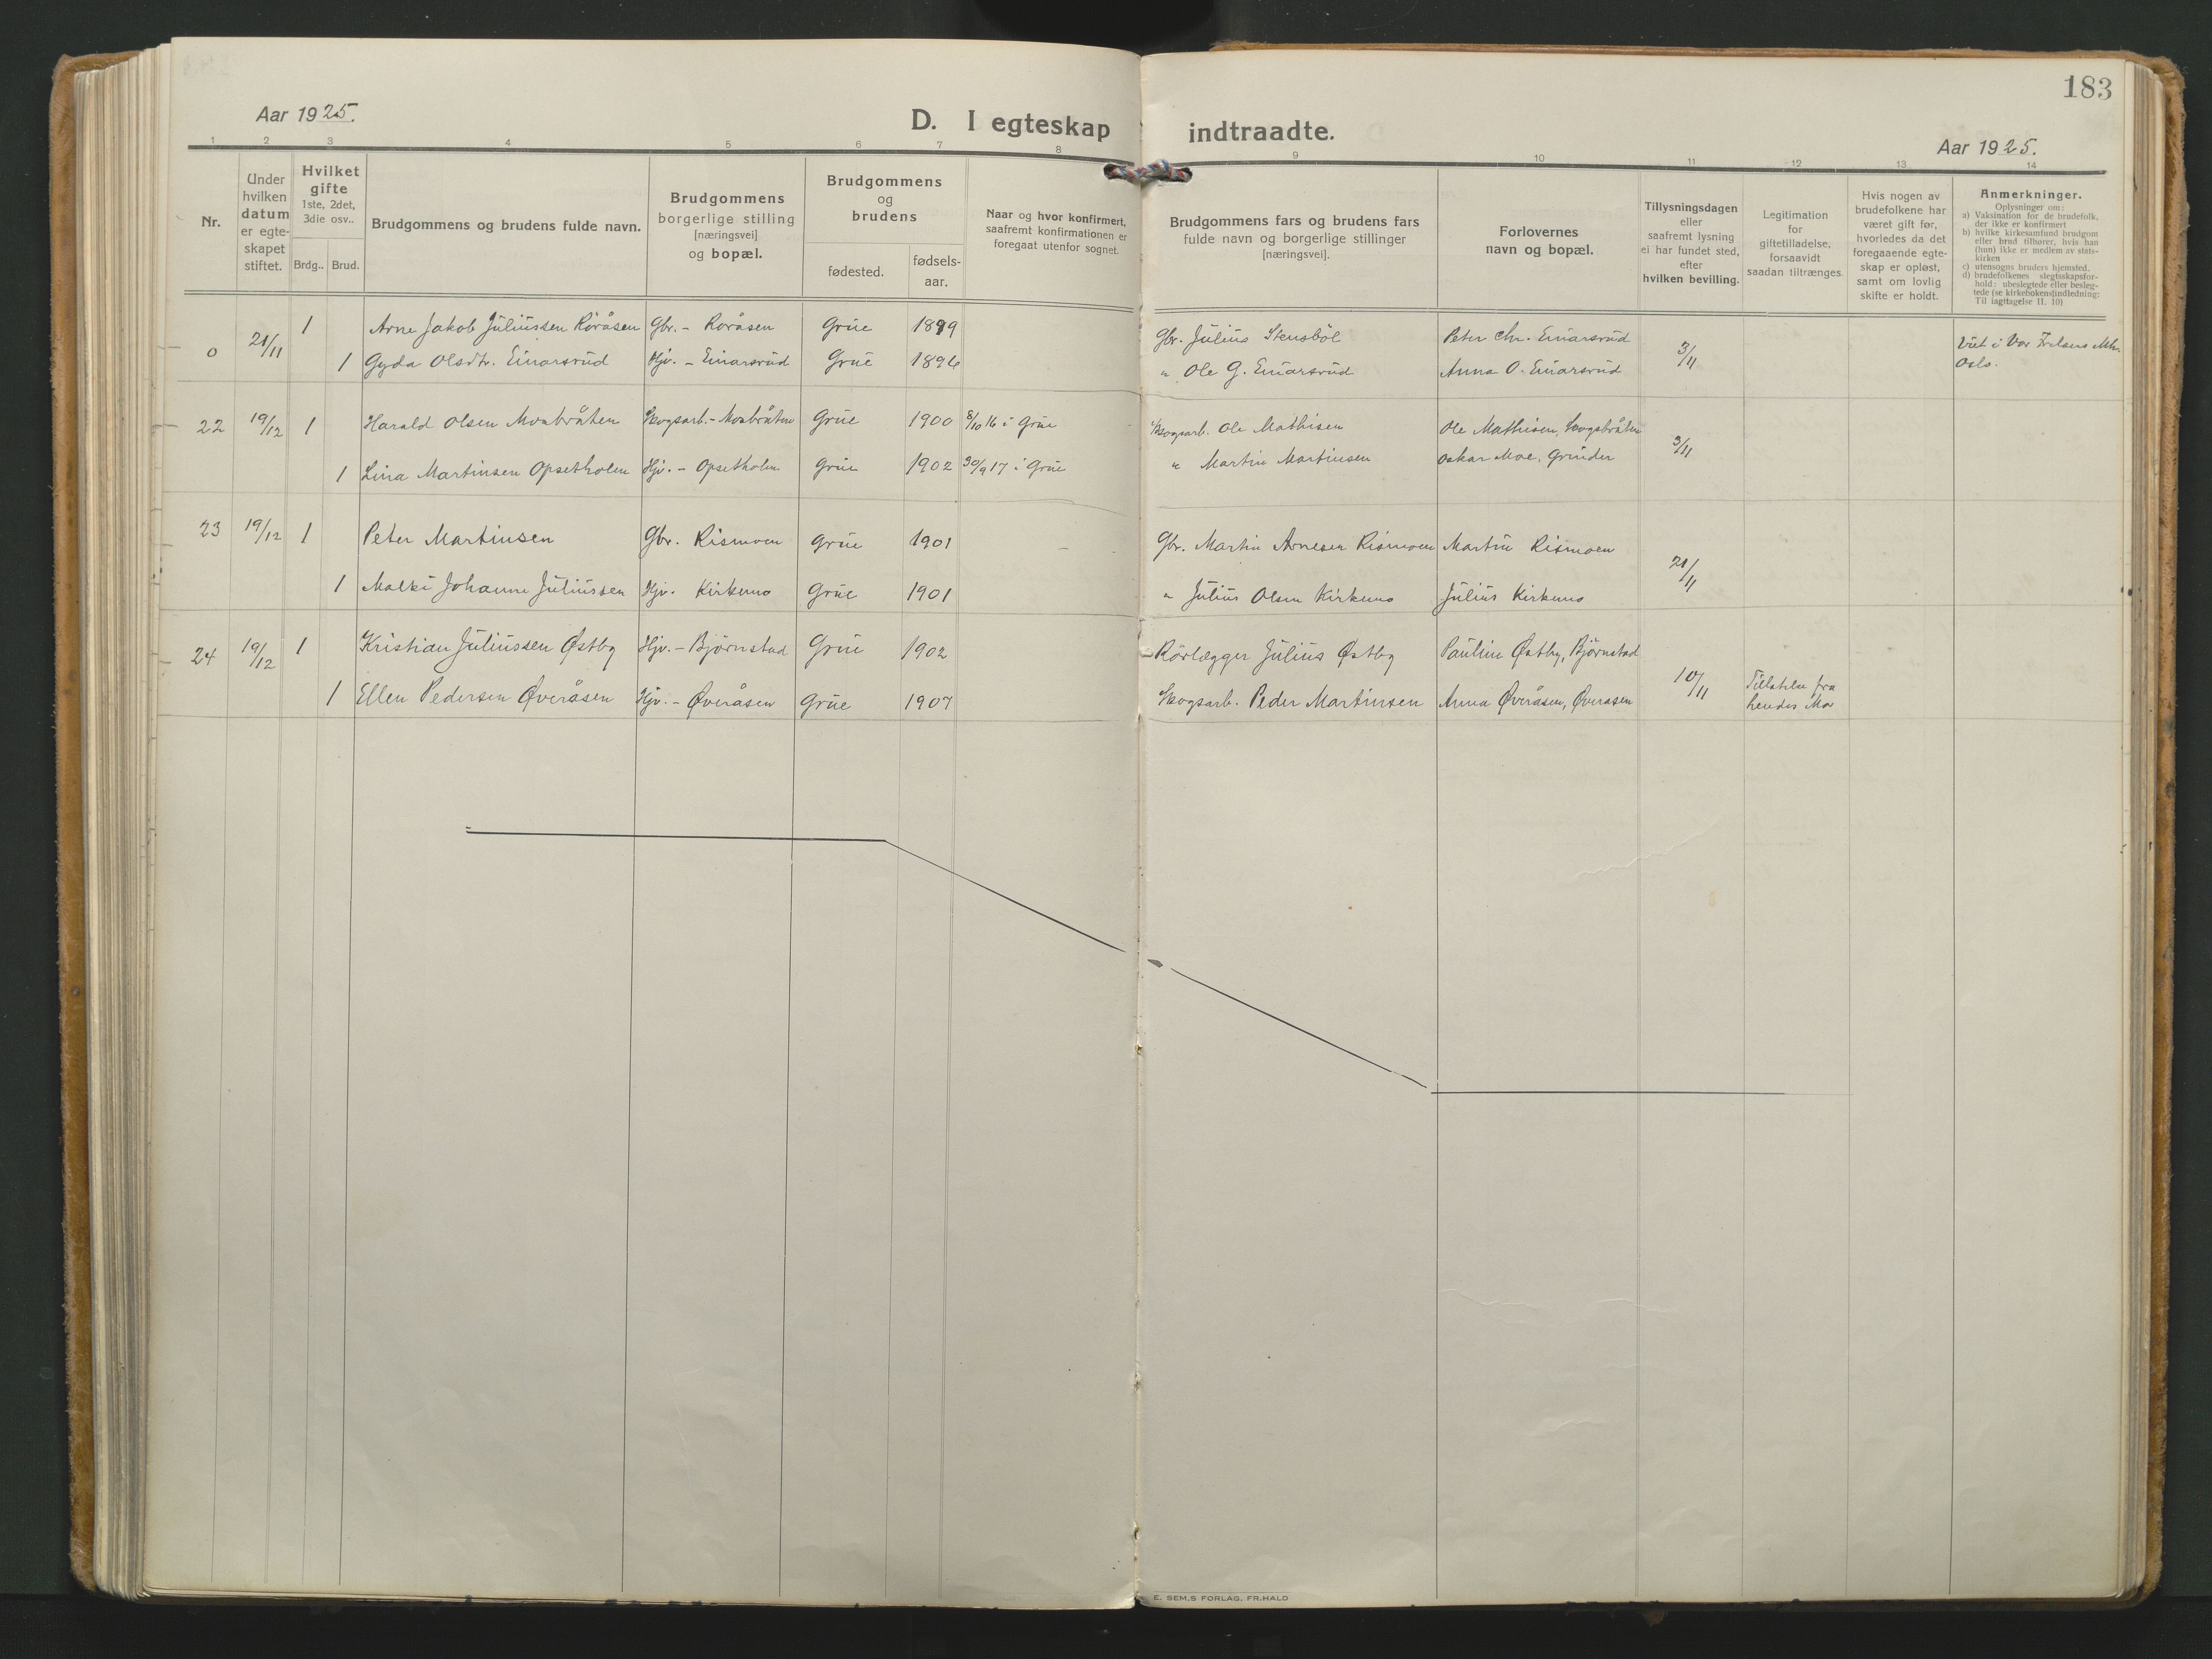 183
Aar 1925.
D. I egteskap indtraadte.
Aar 1925.
1 2 3 4 5 6 7 8 9 10 11 12 13 14
Nr.
Under
hvilken
datum
er egte-
skapet
stiftet.
Hvilket
gifte
1ste, 2det,
3die osv..
Brdg.. Brud.
Brudgommens og brudens fulde navn.
Brudgommens
borgerlige stilling
[næringsvei]
og bopæl.
Brudgommens
og
brudens
fødested.
fødsels-
aar.
Naar og hvor konfirmert,
saafremt konfirmationen er
foregaat utenfor sognet.
Brudgommens fars og brudens fars
fulde navn og borgerlige stillinger
[næringsvei].
Forlovernes
navn og bopæl.
Tillysningsdagen
eller
saafremt lysning
ei har fundet sted,
efter
hvilken bevilling.
Legitimation
for
giftetilladelse,
forsaavidt
saadan tiltrænges.
Hvis nogen av
brudefolkene har
været gift før,
hvorledes da det
foregaaende egte-
skap er opløst,
samt om lovlig
skifte er holdt.
Anmerkninger.
Oplysninger om:
a) Vaksination for de brudefolk,
der ikke er konfirmert
b) hvilke kirkesamfund brudgom
eller brud tilhører, hvis han
(hun) ikke er medlem av stats-
kirken
c) utensogns bruders hjemsted.
d) brudefolkenes slegtsskapsfor-
hold: ubeslegtede eller besleg-
tede (se kirkebokens indledning:
Til iagttagelse II. 10)
0 21/11 1 Arne Jakob Juliussen Röråsen Gbr. - Roråsen Grue 1899 Gbr. Julius Stensböl Peter Chr. Einarsrud 3/11 Viet i Vor Frelsers
1 Gyda Olsdtr. Einarsrud Hjv. - Einarsrud Grue 1896 " Ole G. Einarsrud Anna O. Einarsrud Oslo.
22 19/12 1 Harald Olsen Moabråten Skogsarb. - Moabråten Grue 1900 8/10 16 i Grue Skogsarb. Ole Mathisen Ole Mathisen, Skogsbråten 3/11
1 Lina Martinsen Opsetholm Hjv. - Opsetholm Grue 1902 30/9 17 i Grue " Martin Martinsen Oskar Moe, Grinder
23 19/12 1 Peter Martinsen Gbr. Rismoen Grue 1901 - Gbr. Martin Arnesen Rismoen Martin Rismoen 21/11
1 Malki Johanne Juliussen Hjv. Kirkemo Grue 1901 " Julius Olsen Kirkemo Julius Kirkemo
24 19/12 1 Kristian Juliussen Østby Hjv. - Björnstad Grue 1902 Rörlægger Julius Østby Pauline Østby, Björnstad 10/11 Tillatelse fra
1 Ellen Pedersen Øveråsen Hjv. - Øveråsen Grue 1907 Skogsarb. Peder Martinsen Anna Øveråsen, Øveråsen hendes Mor
E. SEM,S FORLAG, FR.HALD